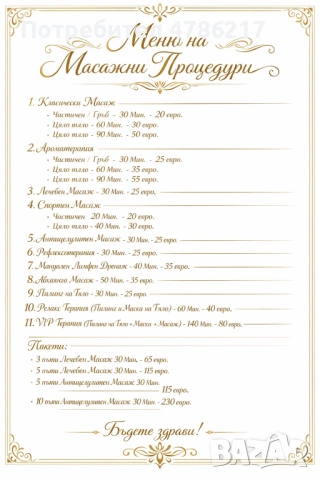 Потребител 4786217
Меню на
Масажни Процедури
1. Класически Масаж
- Частичен / Гръб - 30 Мин. - 20 евро.
- Цяло тяло - 60 Мин. - 30 евро.
- Цяло тяло - 90 Мин. - 50 евро.
2. Ароматерапия
- Частичен / Гръб - 30 Мин. - 25 евро.
- Цяло тяло - 60 Мин. - 35 евро.
- Цяло тяло - 90 Мин. - 55 евро.
3. Лечебен Масаж - 30 Мин - 25 евро.
4. Спортен Масаж
- Частичен 20 Мин - 20 евро.
- Цяло тяло - 40 Мин - 30 евро.
5. Антицелулитен Масаж - 30 Мин - 25 евро.
6. Рефлексотерапия - 30 Мин - 25 евро.
7. Мануален Лимфен Дренаж - 40 Мин - 35 евро.
8. Авханга Масаж - 50 Мин - 35 евро.
9. Пилинг на Тяло - 30 Мин. - 25 евро.
10. Релакс Терапия (Пилинг и Маска на Тяло) - 60 Мин - 40 евро.
11. VIP Терапия (Пилинг на Тяло + Маска + Масаж) - 140 Мин - 80 евро.
Пакети:
- 3 пъти Лечебен Масаж 30 Мин, - 65 евро.
- 5 пъти Лечебен Масаж 30 Мин - 115 евро.
- 5 пъти Антицелулитен Масаж 30 Мин
115 евро.
- 10 пъти Антицелулитен Масаж 30 Мин - 230 евро.
Бъдете здрави!
BAZAR